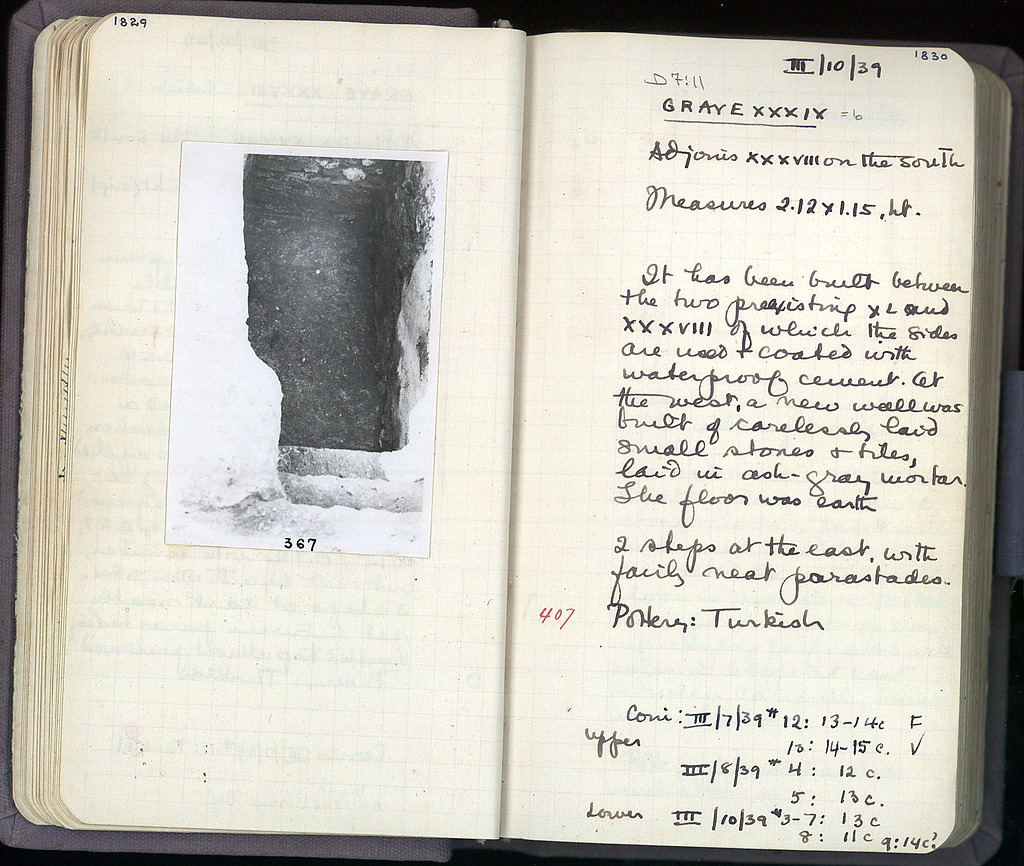 1829
367
1830
III/10/39
D7:11
GRAVE XXXIX = 6
Adjoins XXXVIII on the south
Measures 2.12 x 1.15, ht.
It has been built between
the two prexisting XL and
XXXVIII of which the sides
are used + coated with
waterproof cement. At
the west, a new wall was
built of carelessly laid
small stones & tiles,
laid in ash-gray mortar.
The floor was earth
2 steps at the east, with
fairly neat parastades.
407 Pottery: Turkish
Coin: III/7/39 # 12: 13-14c F
upper 13: 14-15 c. V
III/8/39 # 4: 12 c.
5: 13 c.
Lower III/10/39 # 3-7: 13 c
8: 11 c 9: 14c?